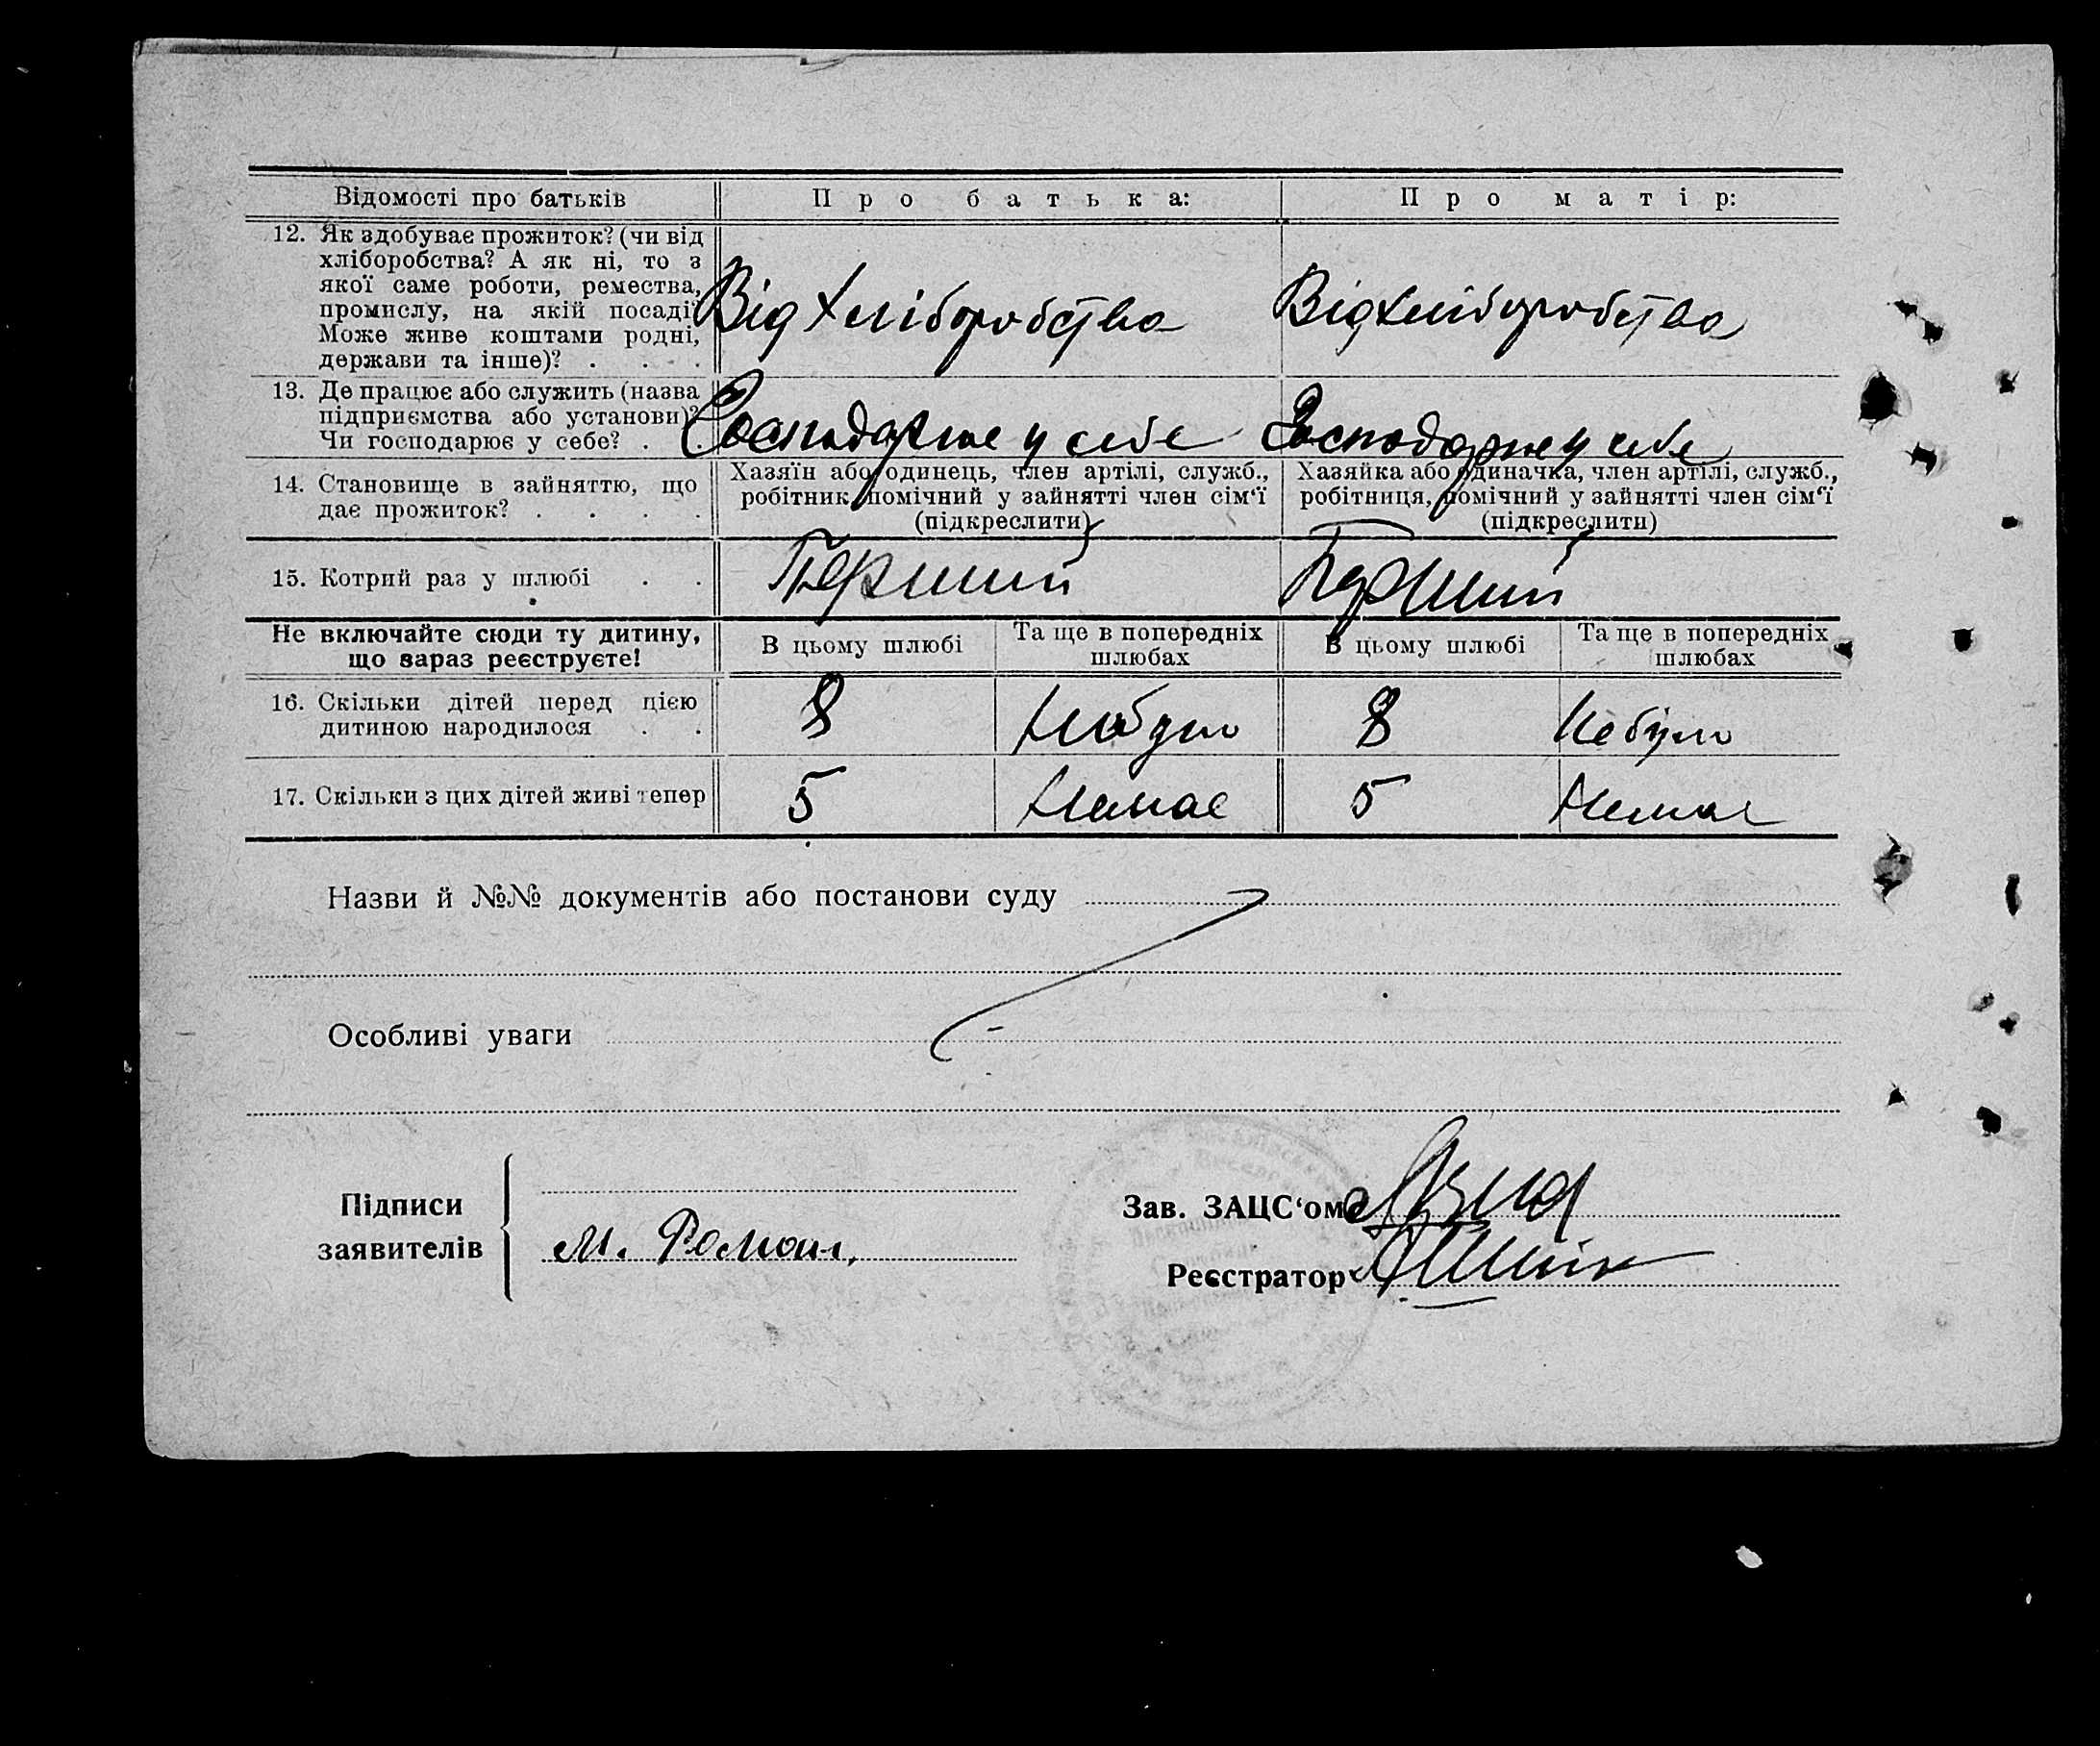 Відомості про батьків
Про батька:
Про матір:
12. Як здобуває прожиток? (чи від
хліборобства? А як ні, то з
якої саме роботи, ремества,
промислу, на якій посаді?
Може живе коштами родні,
держави та інше)? . . .
Від хліборобства
Від хліборобства
13. Де працює або служить (назва
підприємства або установи)?
Чи господарює у себе? . .
Господарює у себе
Господарює у себе
14. Становище в зайняттю, що
дає прожиток? . . . .
Хазяїн або одинець, член артілі, служб.,
робітник, помічний у зайнятті член сім‘ї
(підкреслити)
Хазяйка або одиначка, член артілі, служб.,
робітниця, помічний у зайнятті член сім‘ї
(підкреслити)
15. Котрий раз у шлюбі . .
Перший
Перший
Не включайте сюди ту дитину,
що зараз реєструєте!
В цьому шлюбі
Та ще в попередніх
шлюбах
В цьому шлюбі
Та ще в попередніх
шлюбах
16. Скільки дітей перед цією
дитиною народилося . .
8
Небуло
8
Небуло
17. Скільки з цих дітей живі тепер
5
Немає
5
Немає
Назви й №№ документів або постанови суду
Особливі уваги
Підписи
заявителів
М. Роман
Зав. ЗАЦС‘ом
Реєстратор